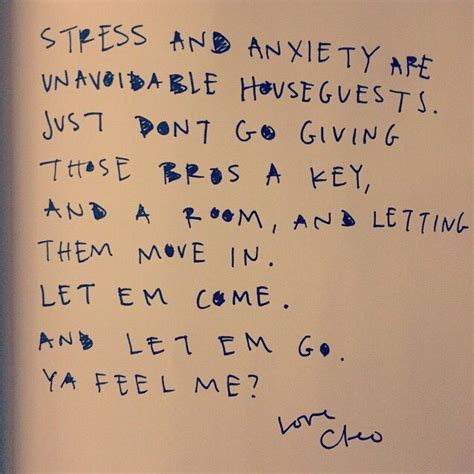 STRESS AND ANXIETY ARE
UNAVOIDABLE HOUSEGUESTS.
JUST DONT GO GIVING
THOSE BROS A KEY,
AND A ROOM, AND LETTING
THEM MOVE IN.
LET EM COME.
AND LET EM GO.
YA FEEL ME?
Love
Cleo